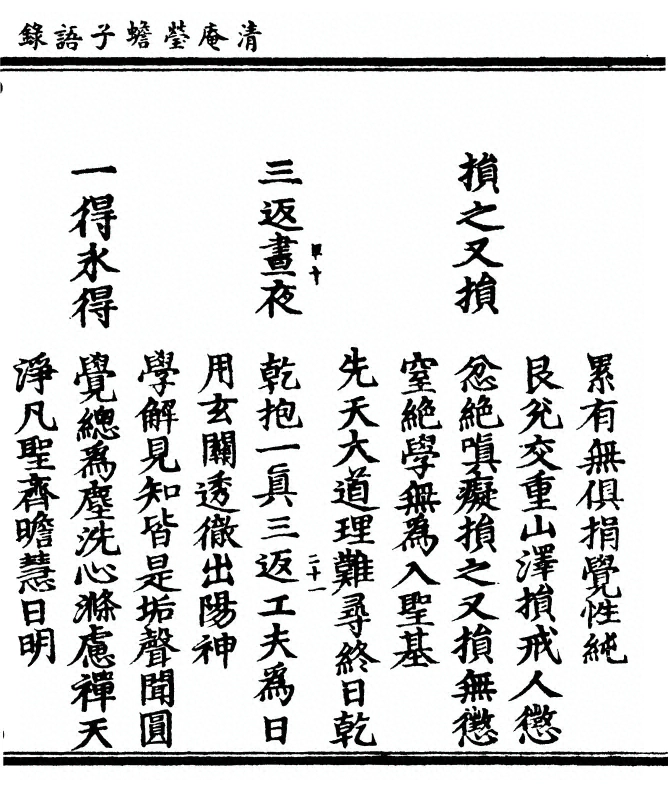 清庵瑩蟾子語錄
累有無俱捐覺性純
損之又損
艮兌交重山澤損戒人懲
忿絕嗔癡損之又損無懲
窒絕學無爲入聖基
三返晝夜
先天大道理難尋終日乾
乾抱一眞三返二十一工夫爲日
用玄關透徹出陽神
一得永得
學解見知皆是垢聲聞圓
覺總爲塵洗心滌慮禪天
淨凡聖齊瞻慧日明